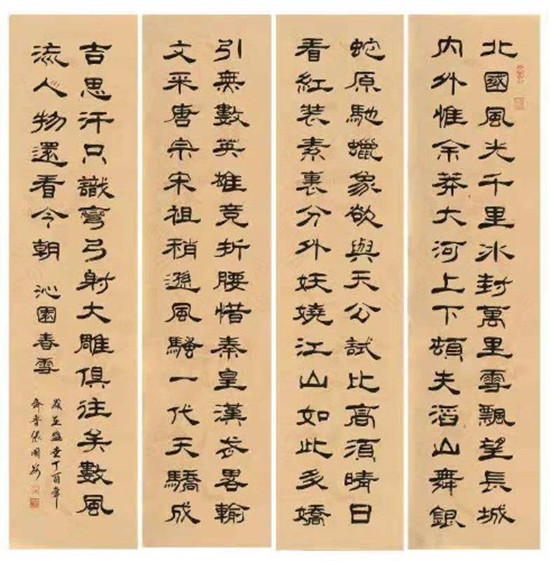 北國風光千里冰封萬里雪飄望長城
內外惟余莽大河上下頓失滔山舞銀
蛇原馳蠟象欲與天公試比高須晴日
看紅裝素裹分外妖嬈江山如此多嬌
引無數英雄竞折腰惜秦皇漢武畧輸
文采唐宗宋祖稍遜風騷一代天驕成
吉思汗只識彎弓射大雕俱往矣數風
流人物還看今朝 沁園春雪
丁酉年